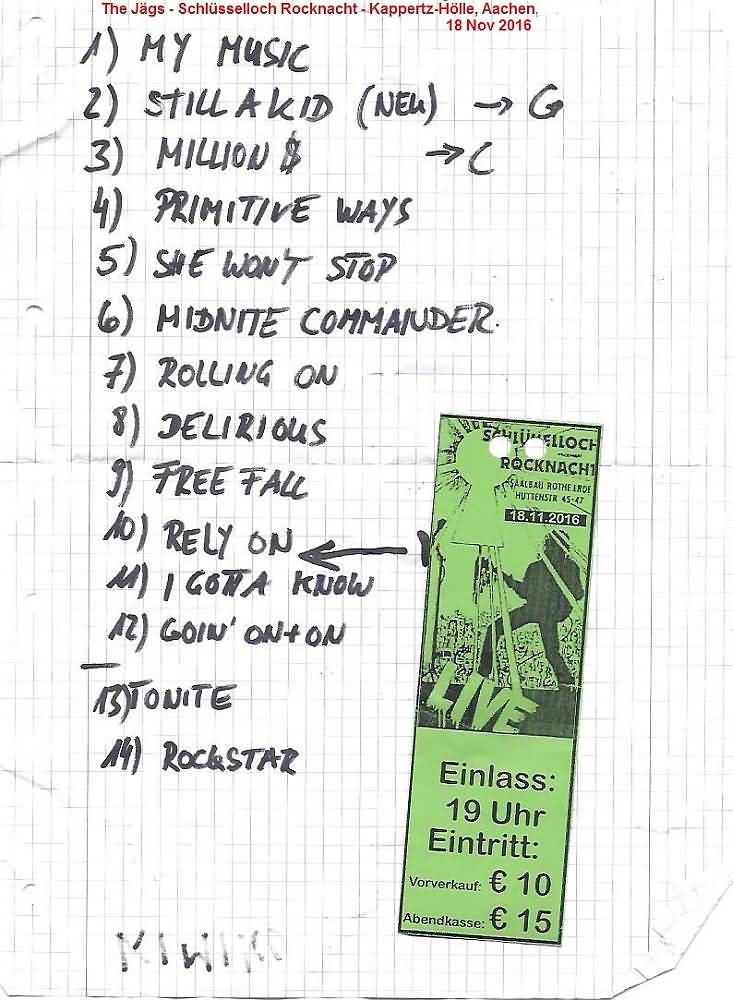 The Jägs - Schlüsselloch Rocknacht - Kappertz-Hölle, Aachen,
18 Nov 2016
1) MY MUSIC
2) STILL A KID (NEU) → G
3) MILLION $ → C
4) PRIMITIVE WAYS
5) SHE WON'T STOP
6) MIDNITE COMMANDER.
7) ROLLING ON
8) DELIRIOUS
9) FREE FALL
10) RELY ON
11) I GOTTA KNOW
12) GOIN' ON + ON
13) TONITE
14) ROCKSTAR
SCHLÜSSELLOCH
ROCKNACHT
SAALBAU ROTHE ERDE
HÜTTENSTR 45-47
18.11.2016
LIVE
Einlass:
19 Uhr
Eintritt:
Vorverkauf: € 10
Abendkasse: € 15